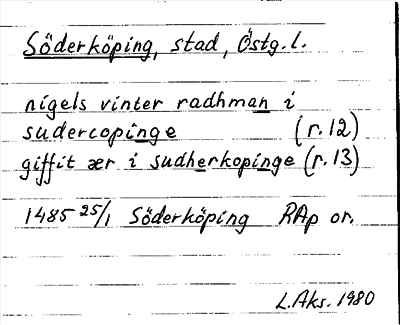 Söderköping, stad, Östg.l.
nigels vinter radhman i
sudercopinge (r.12)
giffit ær i sudherkopinge (r.13)
1485 25/1 Söderköping RAp or.
L.Aks. 1980